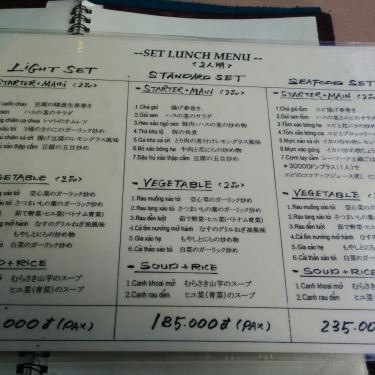 --SET LUNCH MENU --
<2人明>
LIGHT SET
STARTER+MAIN <2品>
cuốn chay 豆腐の精進生春巻き
sen ハスの茎のサラダ
トマトのオムレツ
3種のきのこのガーリック炒め
揚げ豆腐のレモングラス風味
hũ xào thập cẩm 豆腐の五目炒め
VEGETABLE <2品>
muống xào tỏi 空心菜のガーリック炒め
lang xào tỏi さつまいもの葉のガーリック炒め
dền luột 茹で野菜・ヒユ菜(ベトナム青菜)
tím nướng mỡ hành なすのグリルねぎ油風味
xào hẹ もやしとにらの炒め物
thảo xào tỏi 白菜のガーリック炒め
SOUP+RICE
khoai mỡ むらさき山芋のスープ
rau dền ヒユ菜(青菜)のスープ
000đ (PAX)
STANDARD SET
- STARTER+MAIN <2品>
1.Chả giò 揚げ春巻き
2.Gỏi sen ハスの茎のサラダ
3.Heo xào ngó sen 豚肉、ハスの茎の炒め物
4.Thịt kho tộ 豚肉の角煮
5.Gà kho xả ớt とり肉の素付けレモングラス風味
6.Bò xào hẹ 牛肉と花にらの炒め物
7.Đậu hủ xào thập cẩm 豆腐の五目炒め
- VEGETABLE <2品>
1.Rau muống xào tỏi 空心菜のガーリック炒め
2.Rau lang xào tỏi さつまいもの葉のガーリック炒め
3.Rau dền luột 茹で野菜・ヒユ菜(ベトナム青菜)
4.Cà tím nướng mỡ hành なすのグリルねぎ油風味
5.Giá xào hẹ もやしとにらの炒め物
6.Cải thảo xào tỏi 白菜のガーリック炒め
- SOUP+RICE
1.Canh khoai mỡ むらさき山芋のスープ
2.Canh rau dền ヒユ菜(青菜)のスープ
185.000đ (PAX)
SEAFOOD SET
- STARTER+MAIN <2品>
1.Chả giò tôm エビ揚げ春巻き
2.Gỏi sen ハスの茎のサラダ
3.Tôm xào bông hẹ
4.Tôm xào bông cải
5.Mực xào sả ớt
6.Mực xào gừng
7.Cơm tay cầm シーフードと
+30000ドンプラス(1人)で
エビのココナッツジュース蒸し
- VEGETABLE <2品>
1.Rau muống xào tỏi 空心菜の
2.Rau lang xào tỏi さつまいもの
3.Rau dền luột 茹で野菜・
4.Cà tím nướng mỡ hành
5.Giá xào hẹ もやし
6.Cải thảo xào tỏi 白菜の
- SOUP+RICE
1.Canh khoai mỡ むらさき
2.Canh rau dền ヒユ菜
235.00